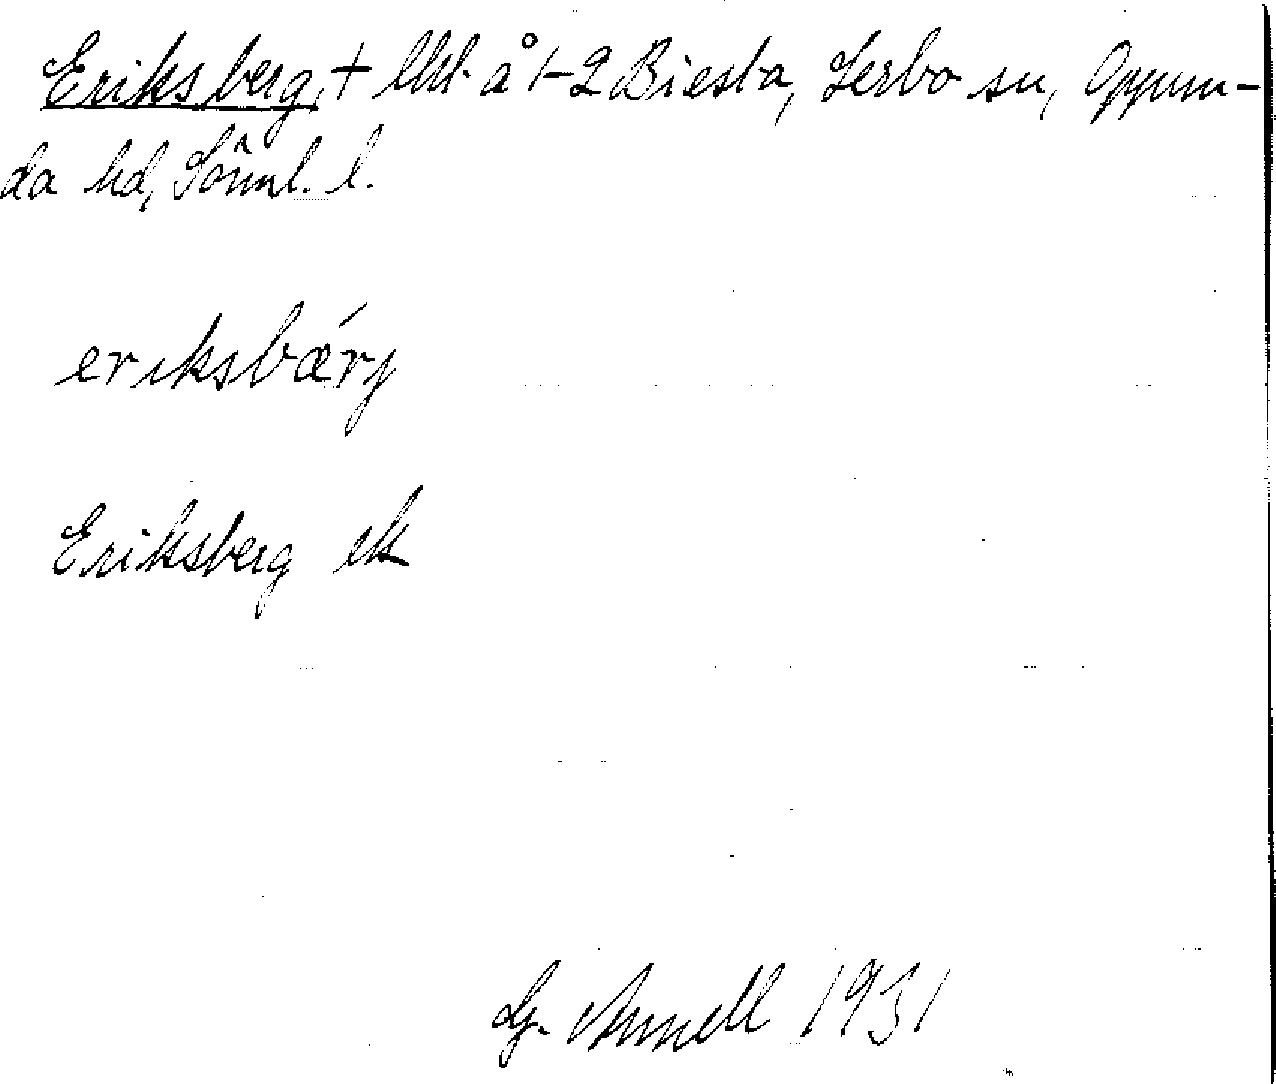 Eriksberg, + lht. å 1-2 Biesta, Lerbo sn, Oppun-
da hd, Sörml. l.
eriksbǽrj
Eriksberg ek
G. Annell 1931